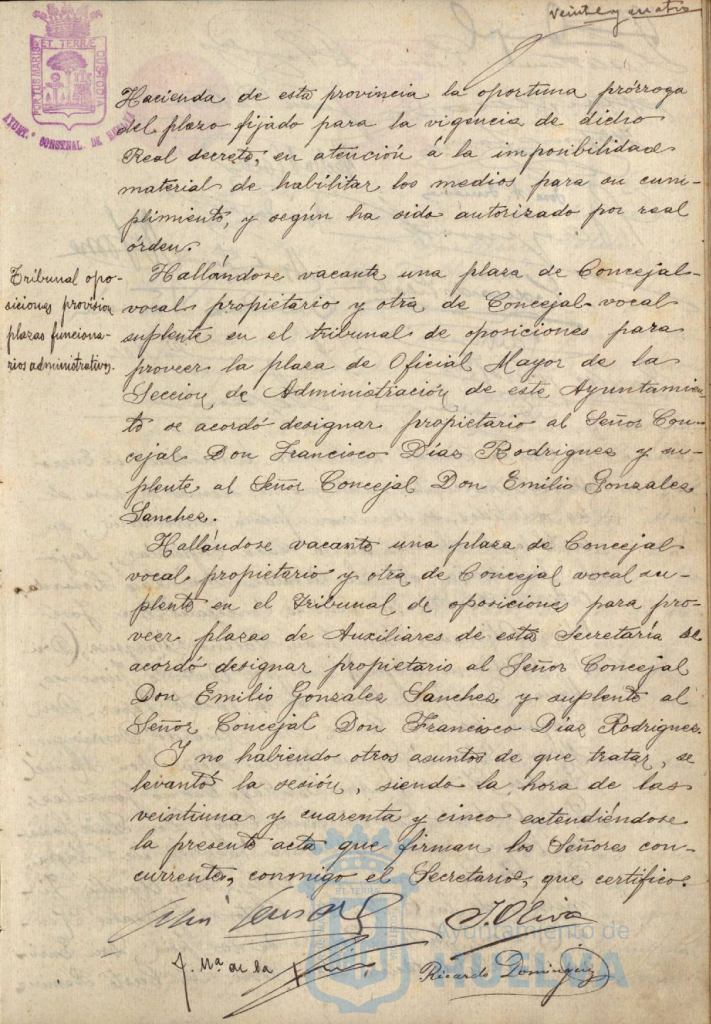 veinte y cuatro
PORTUS MARIS ET TERRÆ CUSTODIA
AYUNT.º CONSTNAL. DE HUELVA
Hacienda de esta provincia la oportuna prórroga
del plazo fijado para la vigencia de dicho
Real decreto, en atención á la imposibilidad
material de habilitar los medios para su cum-
plimiento, y según ha sido autorizado por real
órden.
Tribunal opo-
siciones provision
plazas funciona-
rios administrativos.
Hallándose vacante una plaza de Concejal-
vocal propietario y otra de Concejal-vocal
suplente en el tribunal de oposiciones para
proveer la plaza de Oficial Mayor de la
Seccion de Administración de este Ayuntamien-
to se acordó designar propietario al Señor Con-
cejal Don Francisco Díaz Rodriguez y su-
plente al Señor Concejal Don Emilio Gonzalez
Sanchez.
Hallándose vacante una plaza de Concejal
vocal propietario y otra de Concejal vocal su-
plente en el Tribunal de oposiciones para pro-
veer plazas de Auxiliares de esta Secretaría se
acordó designar propietario al Señor Concejal
Don Emilio Gonzalez Sanchez y suplente al
Señor Concejal Don Francisco Díaz Rodriguez.
Y no habiendo otros asuntos de que tratar, se
levantó la sesión, siendo la hora de las
veintiuna y cuarenta y cinco extendiéndose
la presente acta que firman los Señores con-
currentes, conmigo el Secretario, que certifico.
J. Oliva
J. Mª de la
Ricardo Dominguez
ET TERRÆ
Ayuntamiento de
HUELVA